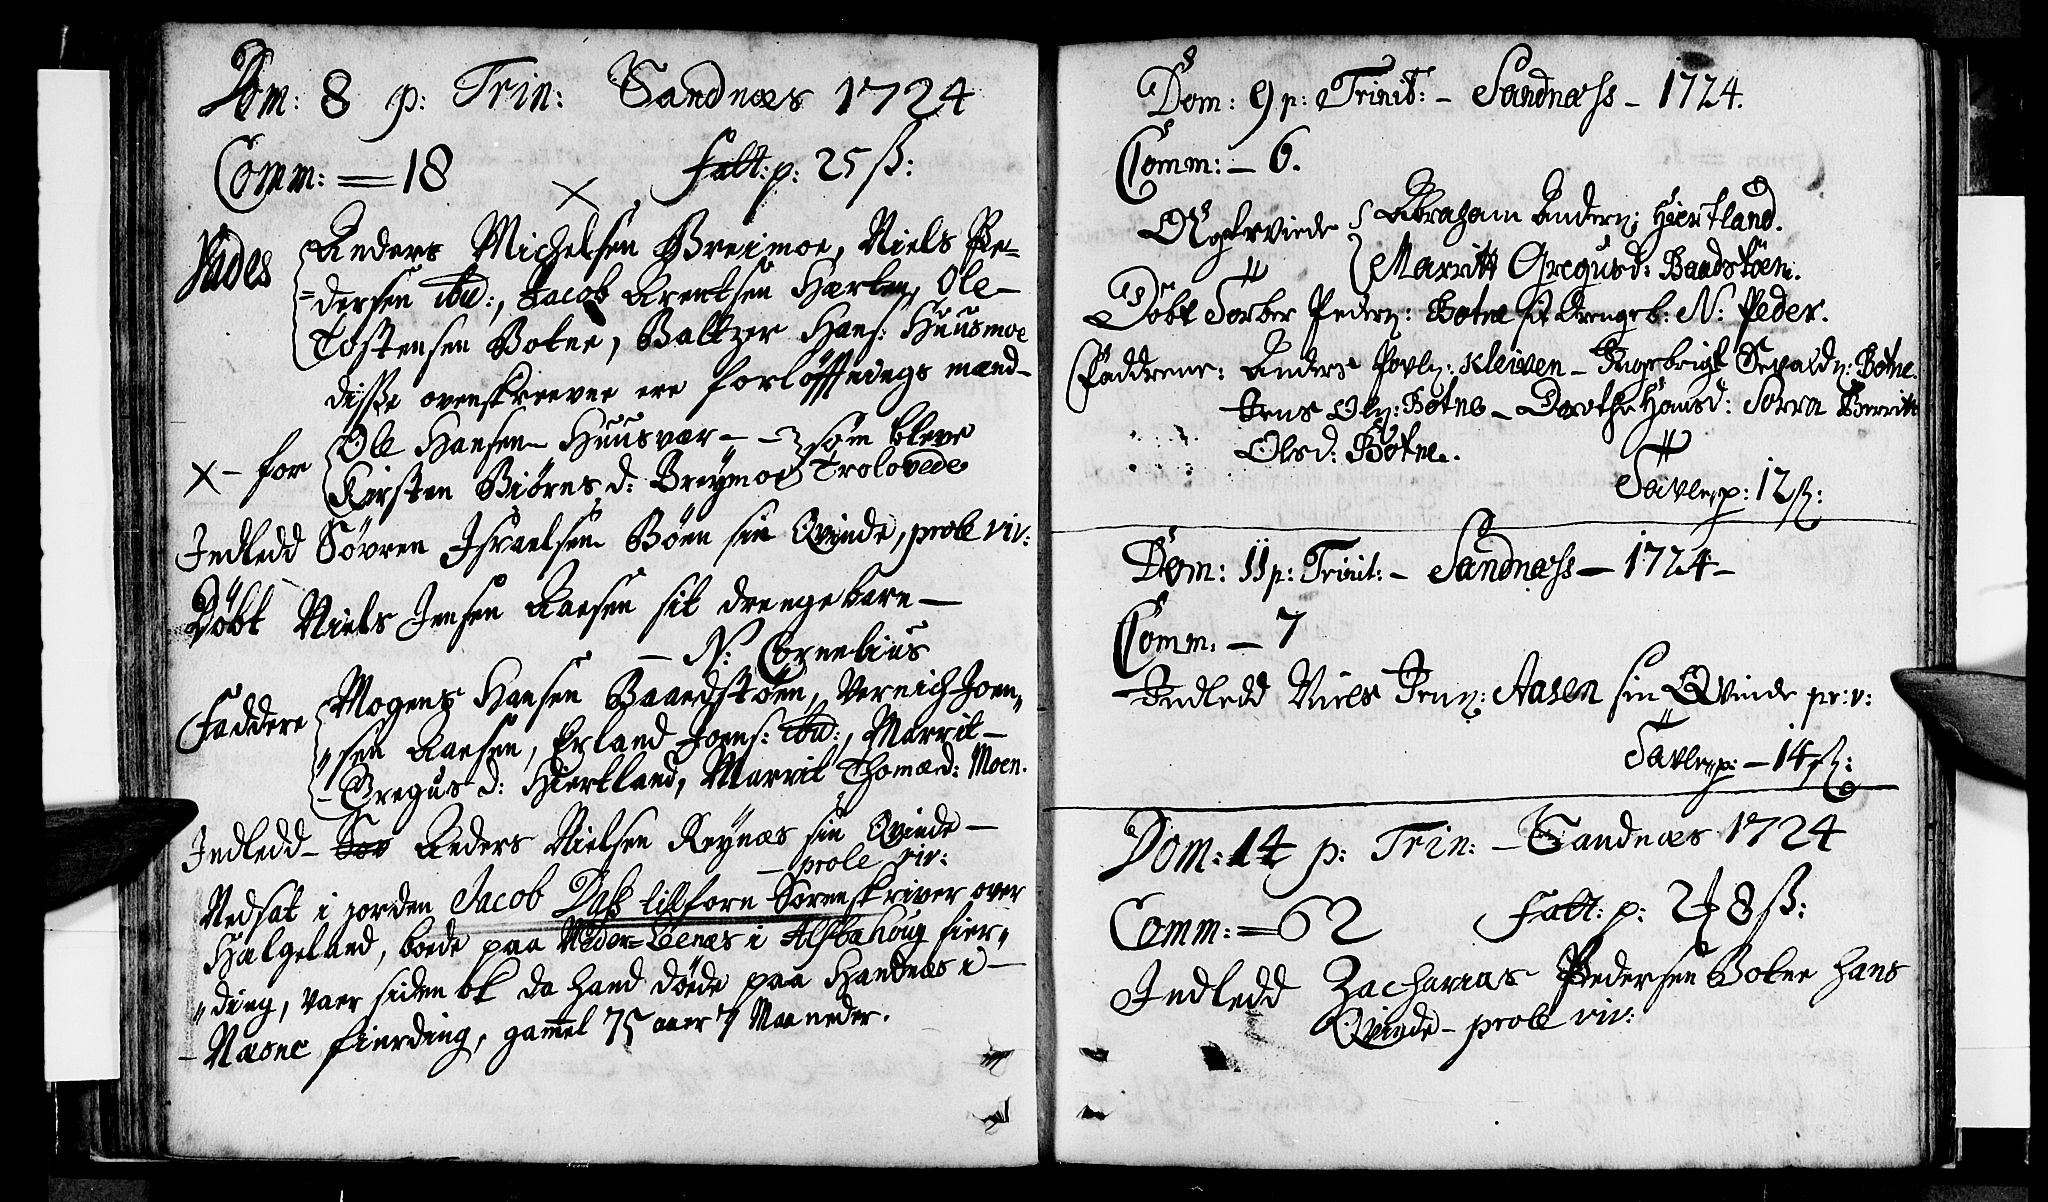 Dom: 8 p: Trin: Sandnæs 1724
Comm: = 18 Fatt: p: 25 ß:
×
Fades Anders Michelsen Breimoe, Niels Pe=
=dersen ibid:, Jacob Arentsen Hærten, Ole-
Tostensen Botne, Baltzer Hans: Huusmoe
disse ovenskreevne ere forløffnings mænd-
×- for Ole Hansen Huusvær - - som bleve
Kirsten Biörnsd: Breÿmoe Troloved
Indledd Søvren Israelsen Böen sin Qvinde, prole viv:
Döbt Niels Jensen Aaesen sit drengebarn -
- N: Cornelius
Faddere Mogens Hansen Baardstöen, Vernich Joen„
„sen Aaesen, Erland Joens: ibid:, Marrit-
-Gregusd: Hiertland, Marrit Thomæd: Moen.
Indledd- Søv Anders Nielsen Reÿnæs sin Qvinde -
- prole viv:
Nedsat i jorden Jacob Dass tilforn Sorenskriver over
Halgeland, boede paa Neder=Leenæs i Alstahoug fier„
„ding, vaer siden ok da hand döde paa Handnæs i -
- Næsne fierding, gam̄el 75 aaer 7 Maaneder.
Dom: 9 p: Trinit: - Sandnæss - 1724.
Comm: - 6.
Ægterviede Abraham Anders: Hiertland.
Marritt Gregusd: Baadstöen.
Döbt Torber Peders: Botne sit drengeb: N: Peder.
Faddrene: Anders Povls: Kleiven - Ingebrigt Sevalds: Botne.
Jens Ols: Botne - Dorthe Hansd: Sorra Berritt
Olsd: Botne.
Tavle p: 12 ß:
Dom: 11 p: Trinit: - Sandnæss - 1724 -
Comm: - 7
Indledd Niels Jens: Aasen sin Qvinde pr: v:
Tavle p: - 14 ß:
Dom: 14 p: Trin: - Sandnæs 1724
Comm: = 62 Fatt: p: 2 8 ß:
Indledd Zacharias Pedersen Botne hans
Qvinde - prole viv: